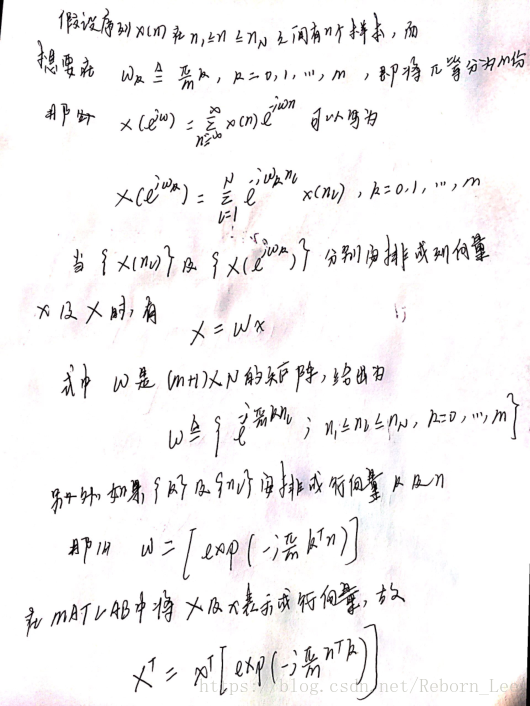 假设序列 x(n) 在 n₁≤n≤n_N 之间有n个样本，而
想要在 ω_k ≜ π/m k, k=0,1,…,m ，即将π等分为m份
那么 X(e^{jω}) = Σ_{n=-∞}^{∞} x(n) e^{-jωn} 可以写为
X(e^{jω_k}) = Σ_{l=1}^{N} e^{-jω_k n_l} x(n_l), k=0,1,…,m
当 {x(n_l)} 及 {X(e^{jω_k})} 分别安排成列向量
x 及 X 时，有
X = Wx
式中 W 是 (m+1)×N 的矩阵，给出为
W ≜ {e^{-j π/m k n_l} ; n₁≤n_l≤n_N, k=0,…,m}
另外，如果 {k} 及 {n_l} 安排成行向量 k 及 n
那么 W = [exp(-j π/m kᵀn)]
在 MATLAB 中将 X 及 x 表示成行向量，故
Xᵀ = xᵀ[exp(-j π/m nᵀk)]
https://blog.csdn.net/Reborn_Lee